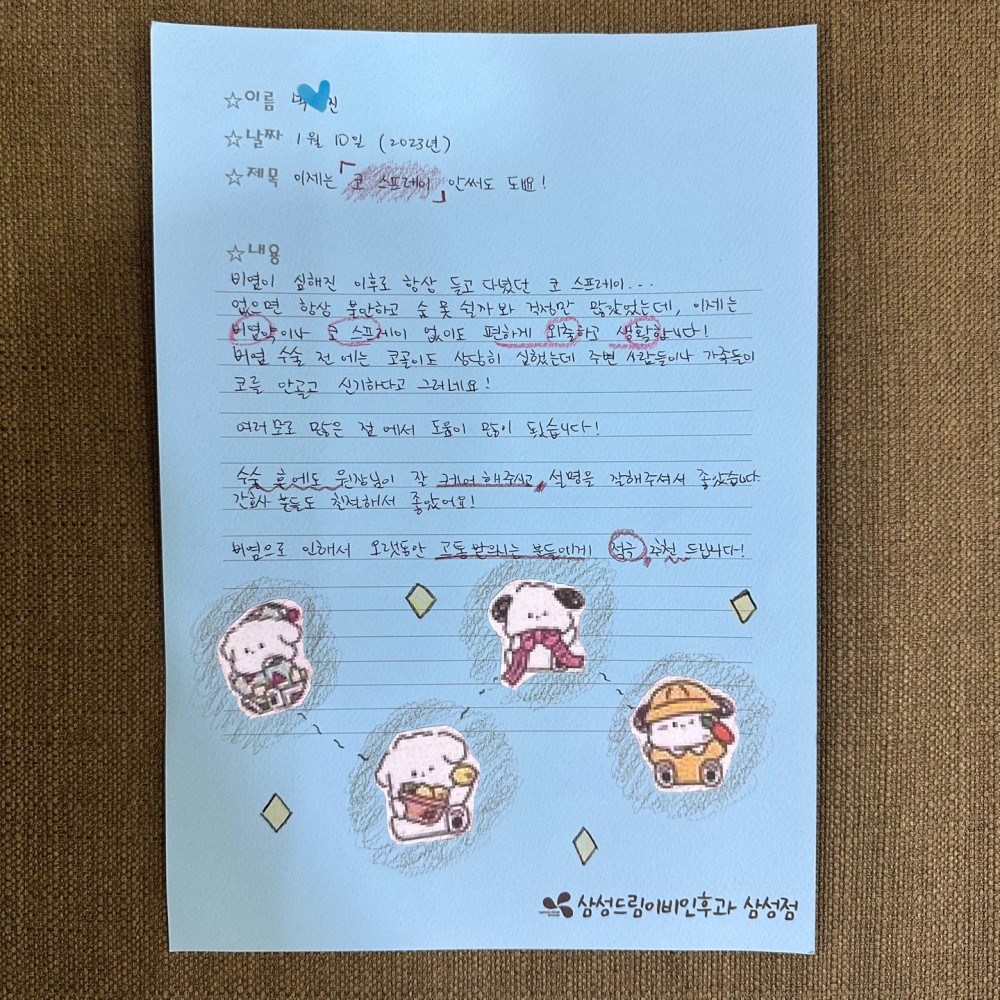 ☆이름 박 진
☆날짜 1월 10일 (2023년)
☆제목 이제는 「코 스프레이」 안써도 되요!
☆내용
비염이 심해진 이후로 항상 들고 다녔던 코 스프레이...
없으면 항상 불안하고 숨 못 쉴까봐 걱정만 많았었는데, 이제는
비염약이나 코 스프레이 없이도 편하게 외출하고 생활합니다!
비염 수술 전 에는 코골이도 상당히 심했는데 주변 사람들이나 가족들이
코를 안골고 신기하다고 그러네요!
여러모로 많은 점에서 도움이 많이 됬습니다!
수술 후에도 원장님이 잘 케어 해주시고, 설명을 잘해주셔서 좋았습니다
간호사 분들도 친절해서 좋았어요!
비염으로 인해서 오랫동안 고통받으시는 분들에게 적극, 추천 드립니다!
삼성드림이비인후과 삼성점